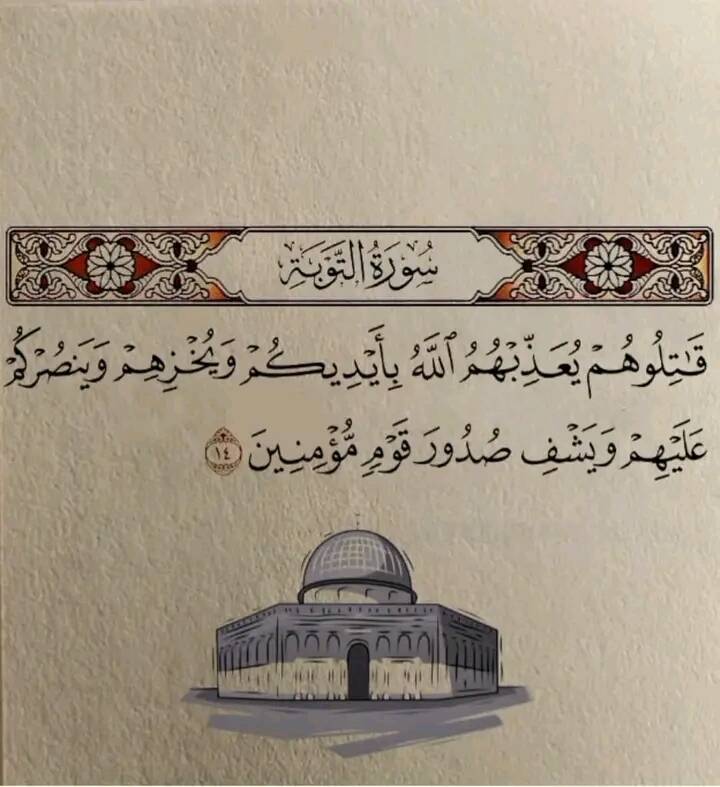 سُورَةُ التَّوْبَةِ
قَـٰتِلُوهُمْ يُعَذِّبْهُمُ ٱللَّهُ بِأَيْدِيكُمْ وَيُخْزِهِمْ وَيَنصُرْكُمْ
عَلَيْهِمْ وَيَشْفِ صُدُورَ قَوْمٍ مُّؤْمِنِينَ ١٤